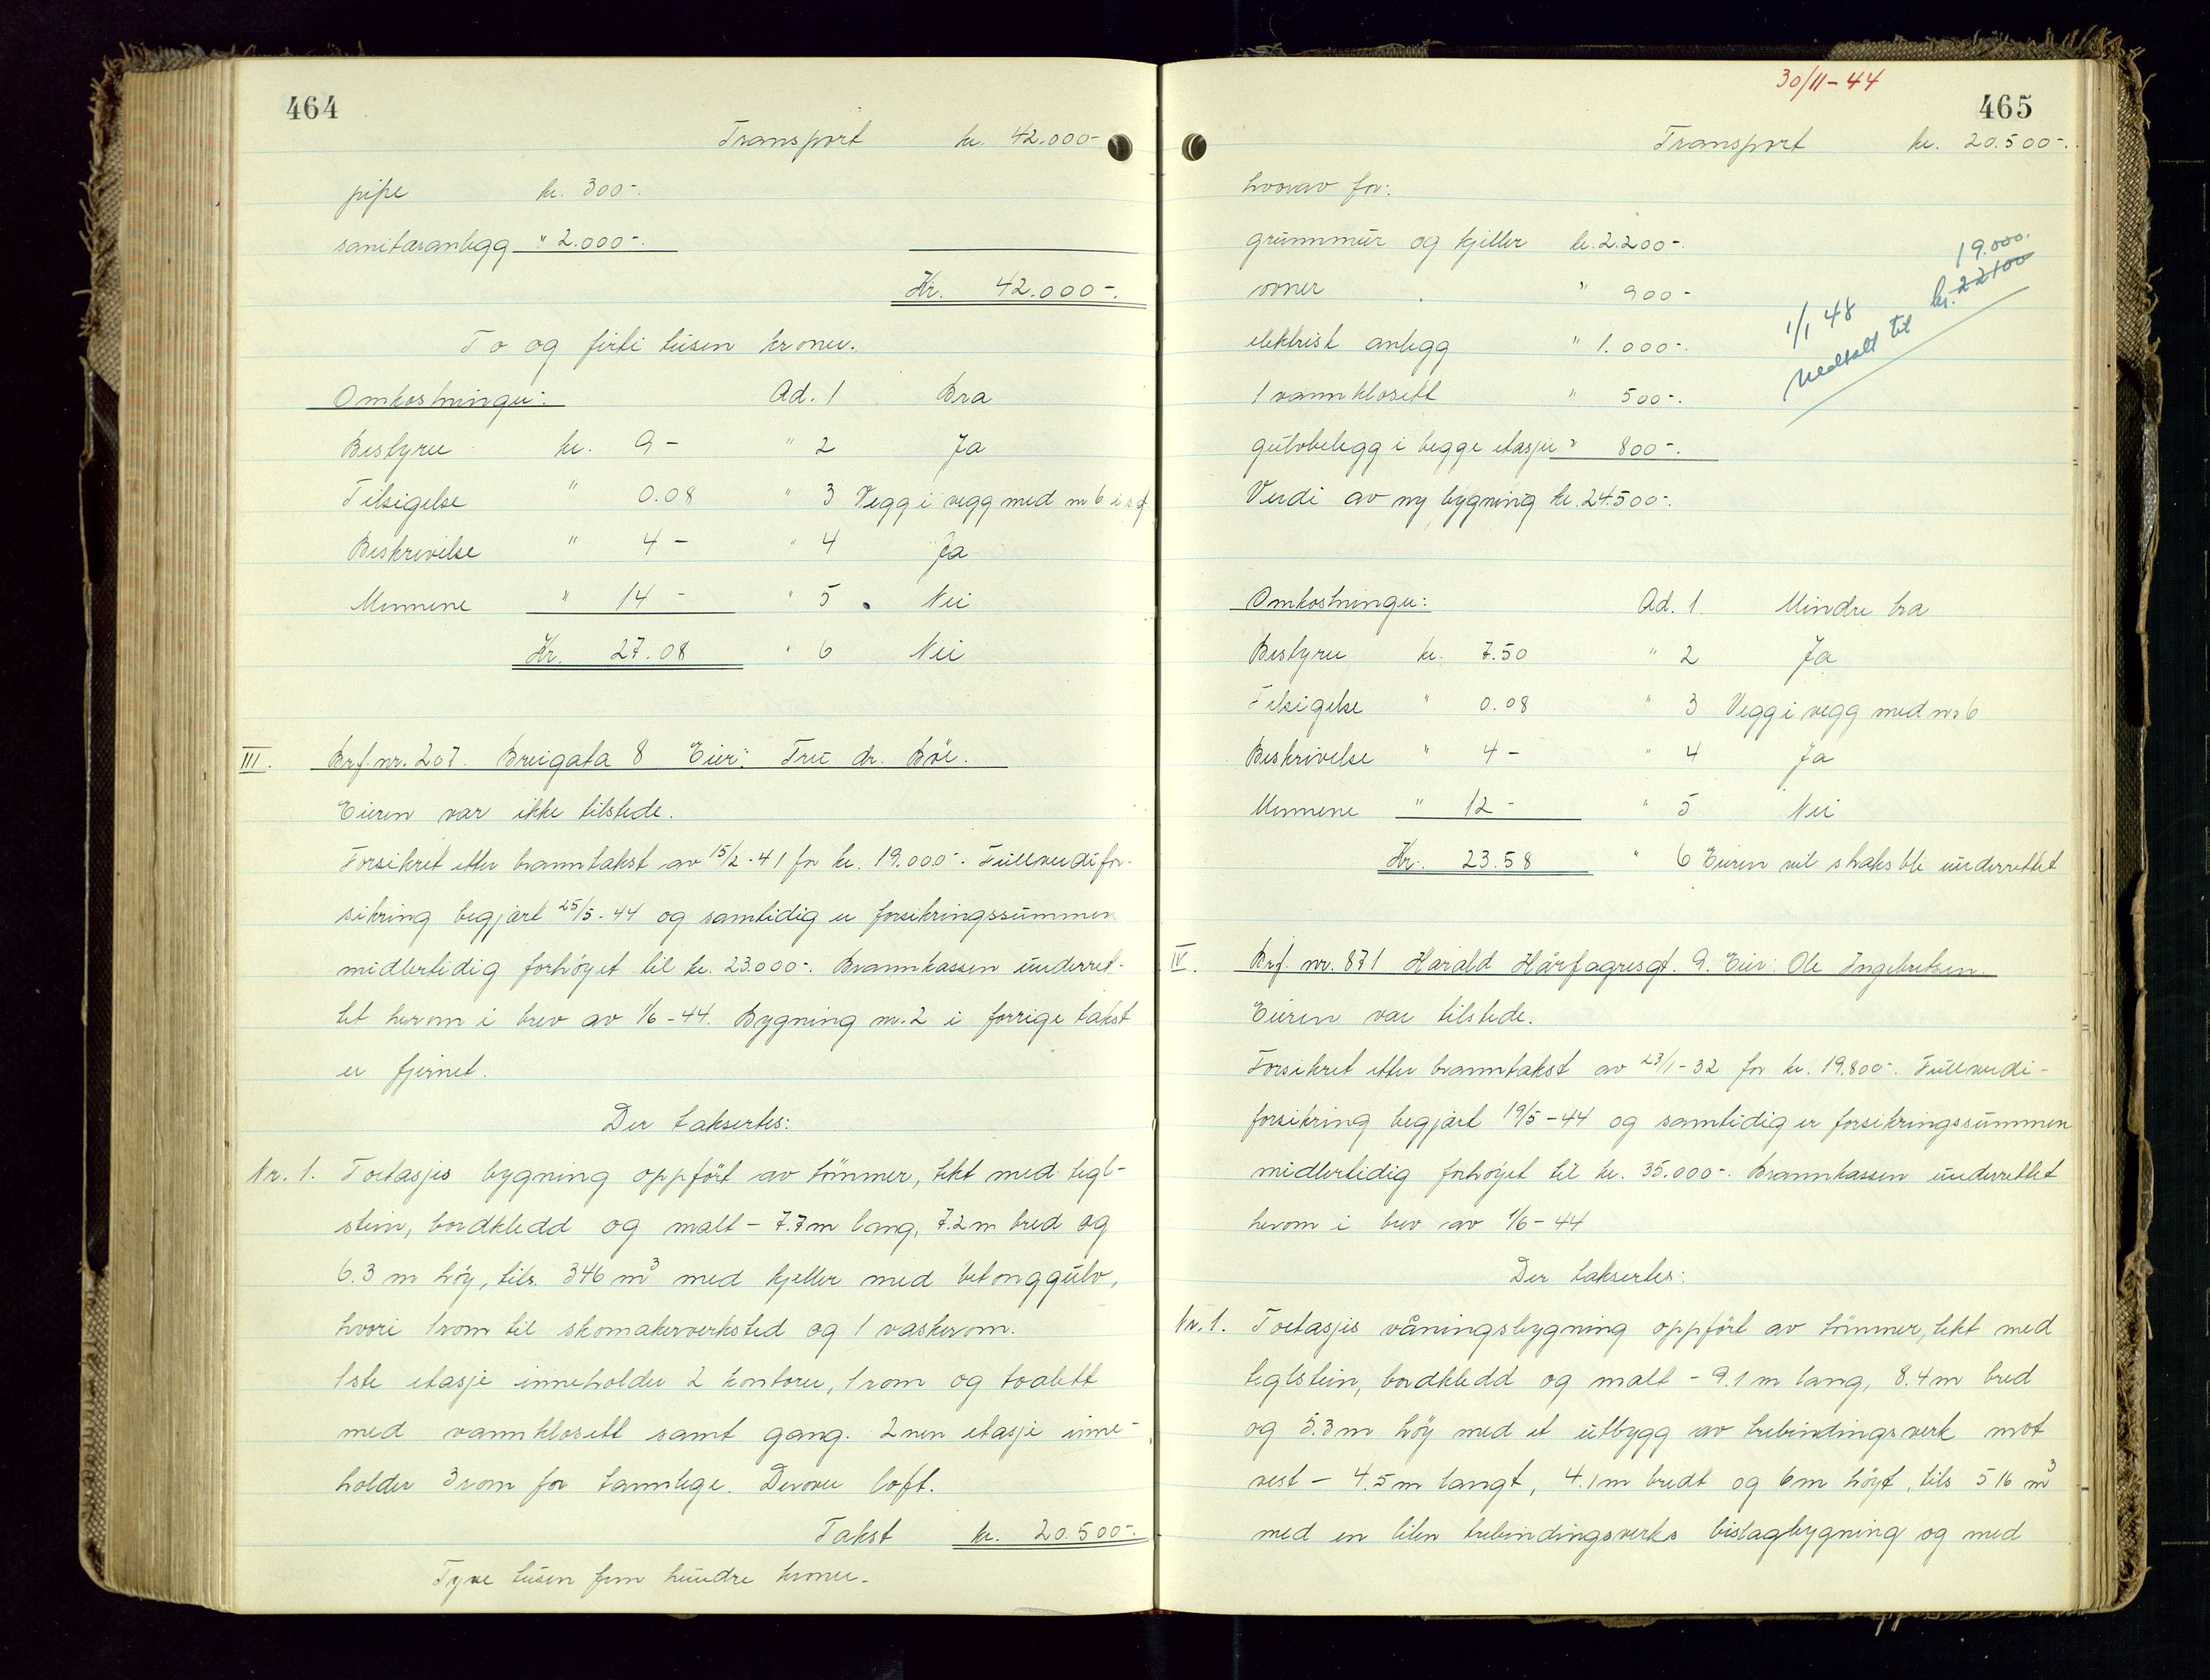 464
Transport kr. 42.000-
pipe kr. 300-.
sanitæranlegg " 2.000-.
Kr. 42.000-.
To og førti tusen kroner.
Omkostninger: Ad. 1 Bra
Bestyrer kr. 9- " 2 Ja
Tilsigelse " 0.08 " 3 Vegg i vegg med nr 6 i s.g.
Beskrivelse " 4- " 4 Ja
Mennene " 14- " 5 Nei
Kr. 27.08 " 6 Nei
III. Brf. nr. 207. Breigata 8 Eier: Fru dr. Bøe.
Eieren var ikke tilstede.
Forsikret etter branntakst av 15/2-41 for kr. 19.000-. Fullverdifor-
sikring begjært 25/5-44 og samtidig er forsikringssummen
midlertidig forhöyet til kr. 23.000-. Brannkassen underret-
tet herom i brev av 1/6-44. Bygning nr. 2 i forrige takst
er fjernet.
Der taksertes:
Nr. 1. Toetasjes bygning oppfört av tömmer, tekt med tegl-
stein, bordkledd og malt - 7.7 m lang, 7.2 m bred og
6.3 m höy, tils. 346 m³ med kjeller med betonggulv,
hvori 1 rom til skomakerverksted og 1 vaskerom.
1ste etasje inneholder 2 kontorer, 1 rom og toalett
med vannklosett samt gang. 2nen etasje inne-
holder 3 rom for tannlege. Derover loft.
Takst kr. 20.500-.
Tyve tusen fem hundre kroner.
30/11-44
465
Transport kr. 20.500-.
hvorav for:
grunnmur og kjeller kr. 2.200-.
ovner " 900-
elektrisk anlegg " 1.000-.
1 vannklosett " 500-.
gulvbelegg i begge etasjer " 800-.
Verdi av ny bygning kr. 24.500-.
1/1 48
19.000.
Nedsatt til kr. 22100
Omkostninger: Ad. 1. Mindre bra
Bestyrer kr. 7.50 " 2 Ja
Tilsigelse " 0.08 " 3 Vegg i vegg med nr 6
Beskrivelse " 4- " 4 Ja
Mennene " 12- " 5 Nei
Kr. 23.58 " 6 Eieren vil straks bli underrettet
IV. Brf. nr. 871 Harald Hårfagresgt. 9. Eier: Ole Ingebretsen
Eieren var tilstede.
Forsikret etter branntakst av 23/1-32 for kr. 19.800-. Fullverdi-
forsikring begjært 19/5-44 og samtidig er forsikringssummen
midlertidig forhöyet til kr. 35.000-. Brannkassen underrettet
herom i brev av 1/6-44
Der taksertes:
Nr. 1. Toetasjes våningsbygning oppfört av tömmer, tekt med
teglstein, bordkledd og malt - 9.1 m lang, 8.4 m bred
og 5.3 m höy med et utbygg av trebindingsverk mot
vest - 4.5 m langt, 4.1 m bredt og 6 m höyt, tils 516 m³
med en liten trebindingsverks bislagbygning og med